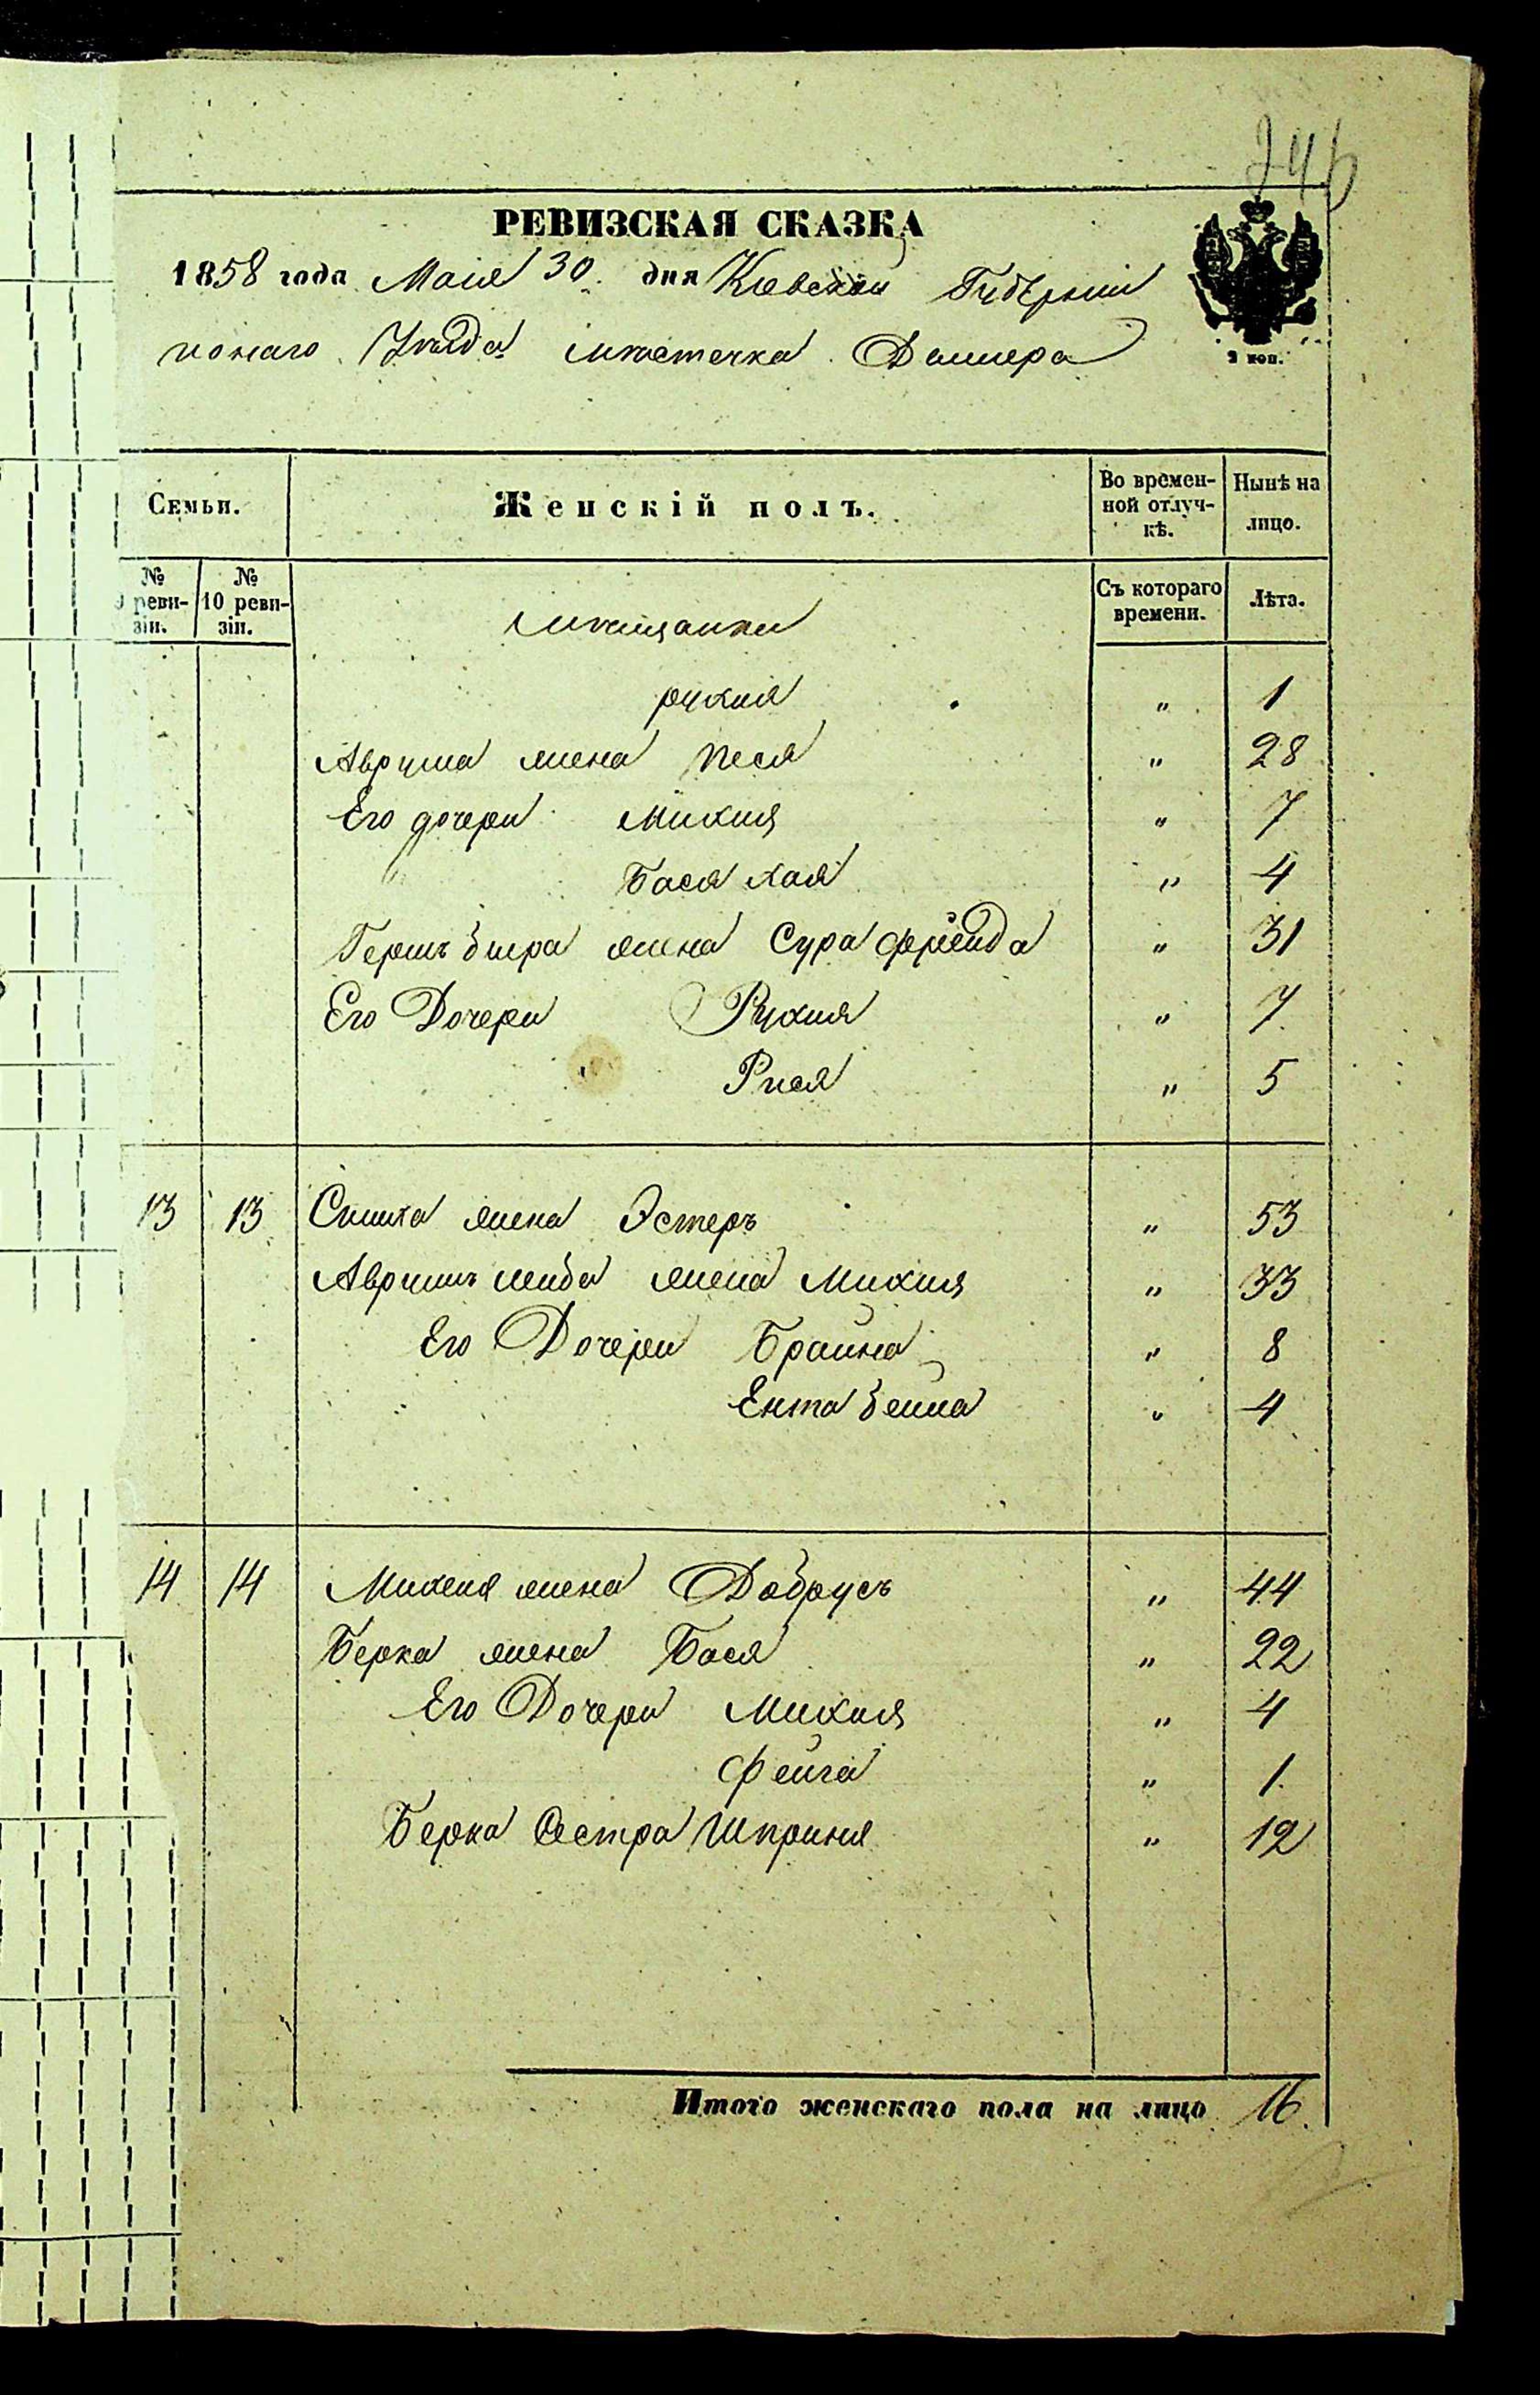 246
РЕВИЗСКАЯ СКАЗКА
1858 года Маія 30. дня Кіевской Губерніи
наго Уѣзда мѣстечка Дымера
2 коп.
Семьи.
Женскій полъ.
Во времен-
ной отлуч-
кѣ.
Нынѣ на
лицо.
№
9 реви-
зіи.
№
10 реви-
зіи.
Мѣщанки
Съ котораго
времени.
Лѣта.
рухля " 1
Аврума жена Песя " 28
Его дочери Михля " 7
Бася хая " 4
Гершъ бера жена Сура фрейда " 31
Его Дочери Рухля " 7
Рися " 5
13 13 жена Эстеръ " 53
Аврумъ лейба жена Михля " 33
Его Дочери Брайна " 8
Ента бейла " 4
14 14 Михеля жена Добрусь " 44
Берка жена Бася " 22
Его Дочери Михля " 4
Фейга " 1
Берка Сестра Шприня " 12
Итого женскаго пола на лицо 16.